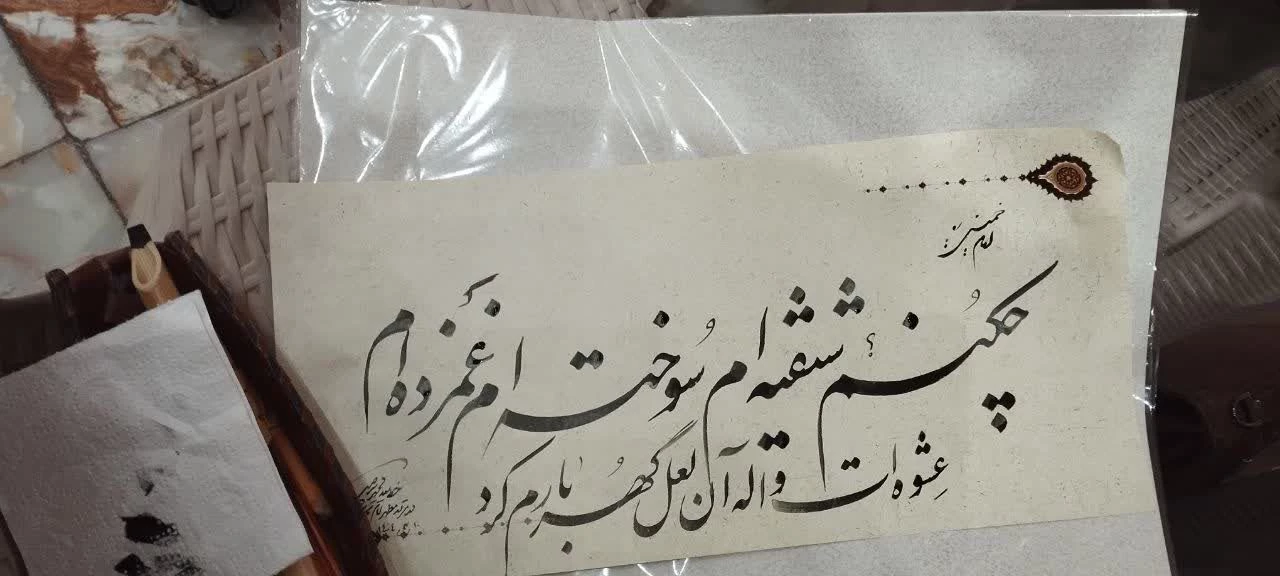 امام خمینی
چکُنم؟ شیفته ام سُوخته ام غمزده ام
عِشوه ات واله آن لعل گُهر بارم کرد